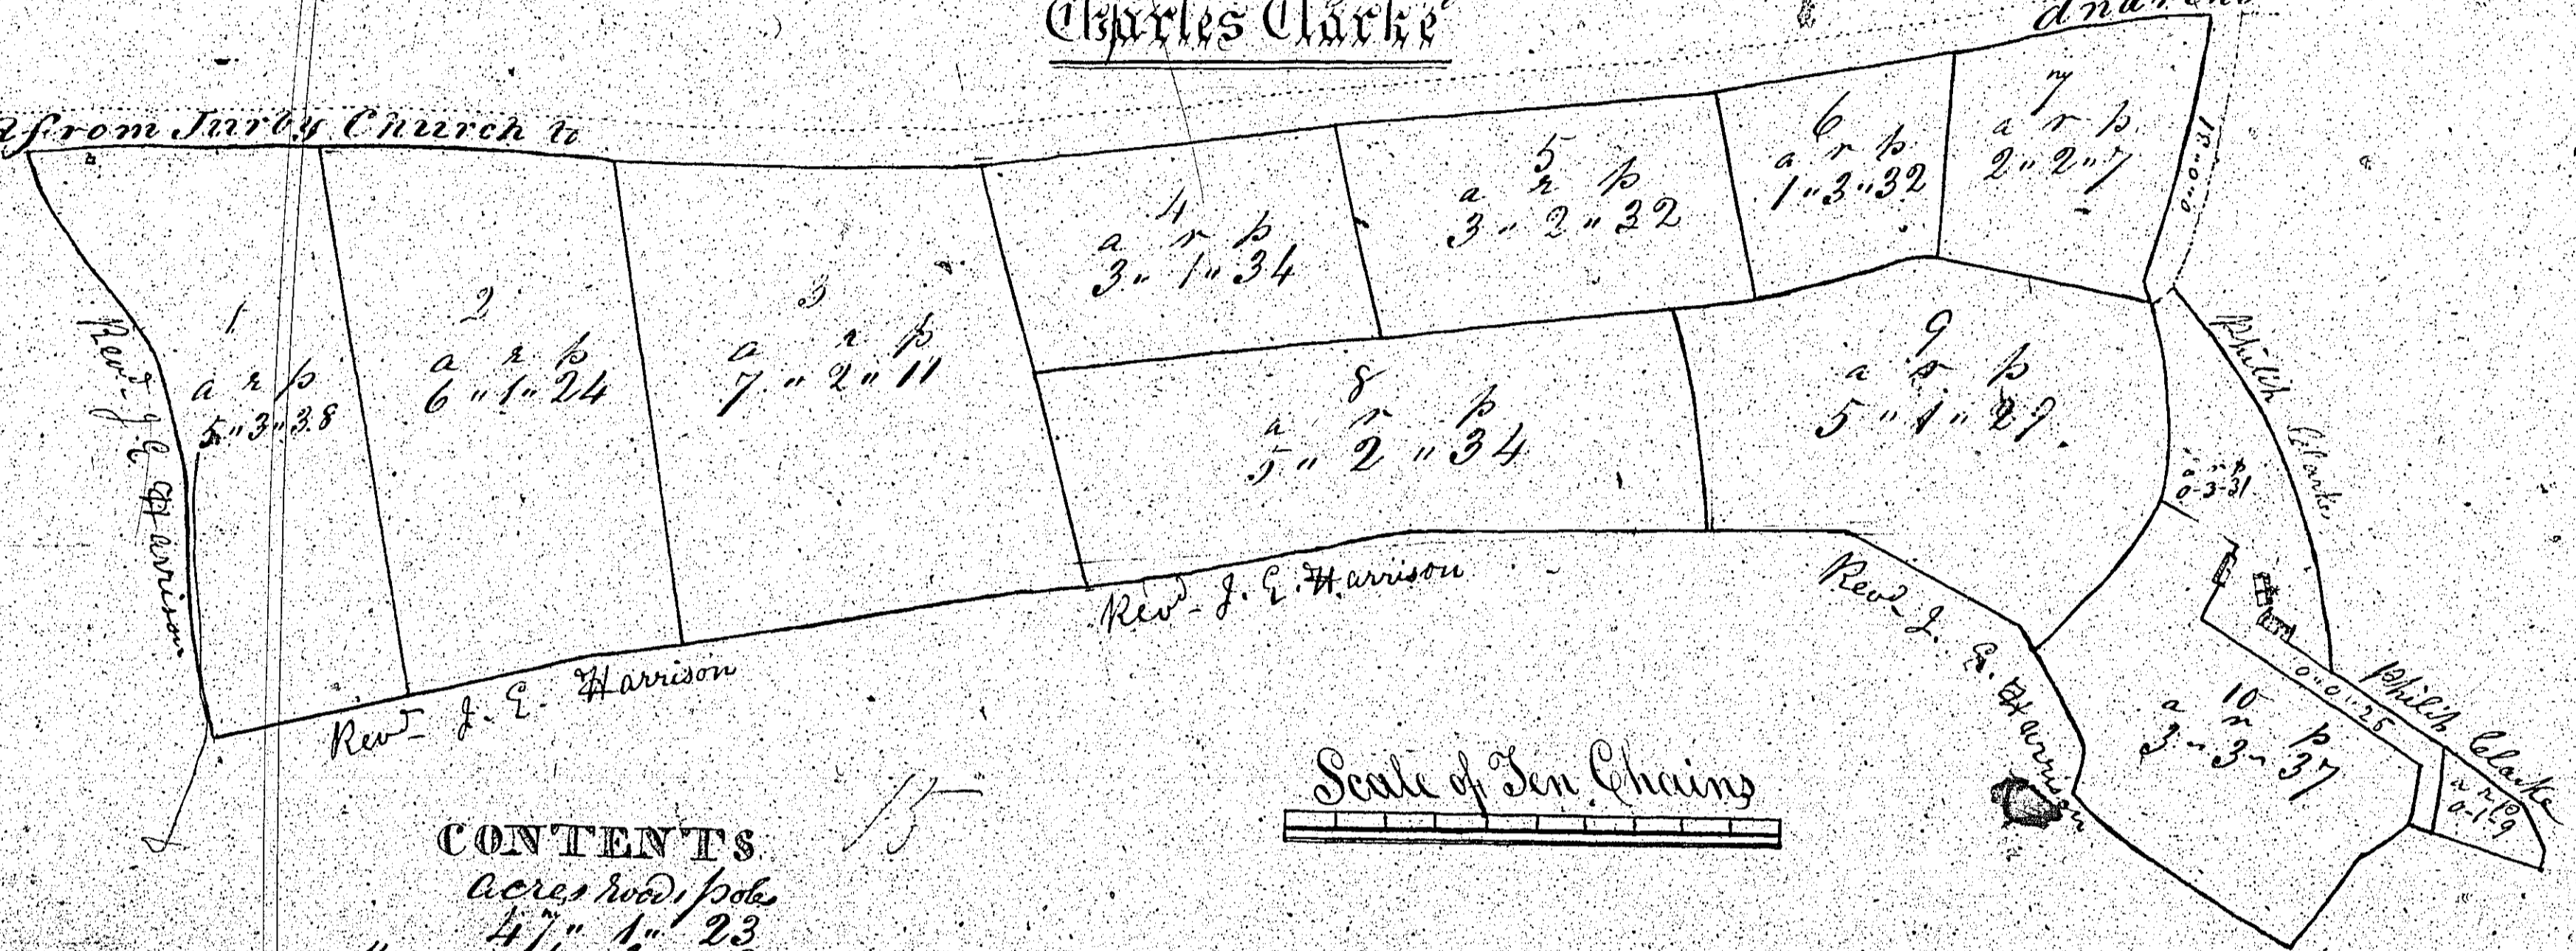 Charles Clarke
from Jurby Church to
1
a r p
5" 3" 38
2
a r p
6" 1" 24
3
a r p
7" 2" 11
4
a r p
3" 1" 34
5
a r p
3" 2" 32
6
a r p
1" 3" 32
7
a r p
2" 2" 7
0"0"31
8
a r p
5" 2" 34
9
a r p
5" 1" 29
a r p
0-3-31
10
a r p
3" 3" 37
0"0"25
a r p
0-1-9
Revd. J. E. Harrison
Revd. J. E. Harrison
Revd. J. E. Harrison
Revd. J. E. Harrison
Philip Clarke
Philip Clarke
Scale of Ten Chains
15
CONTENTS
acres roods poles
47" 1" 23